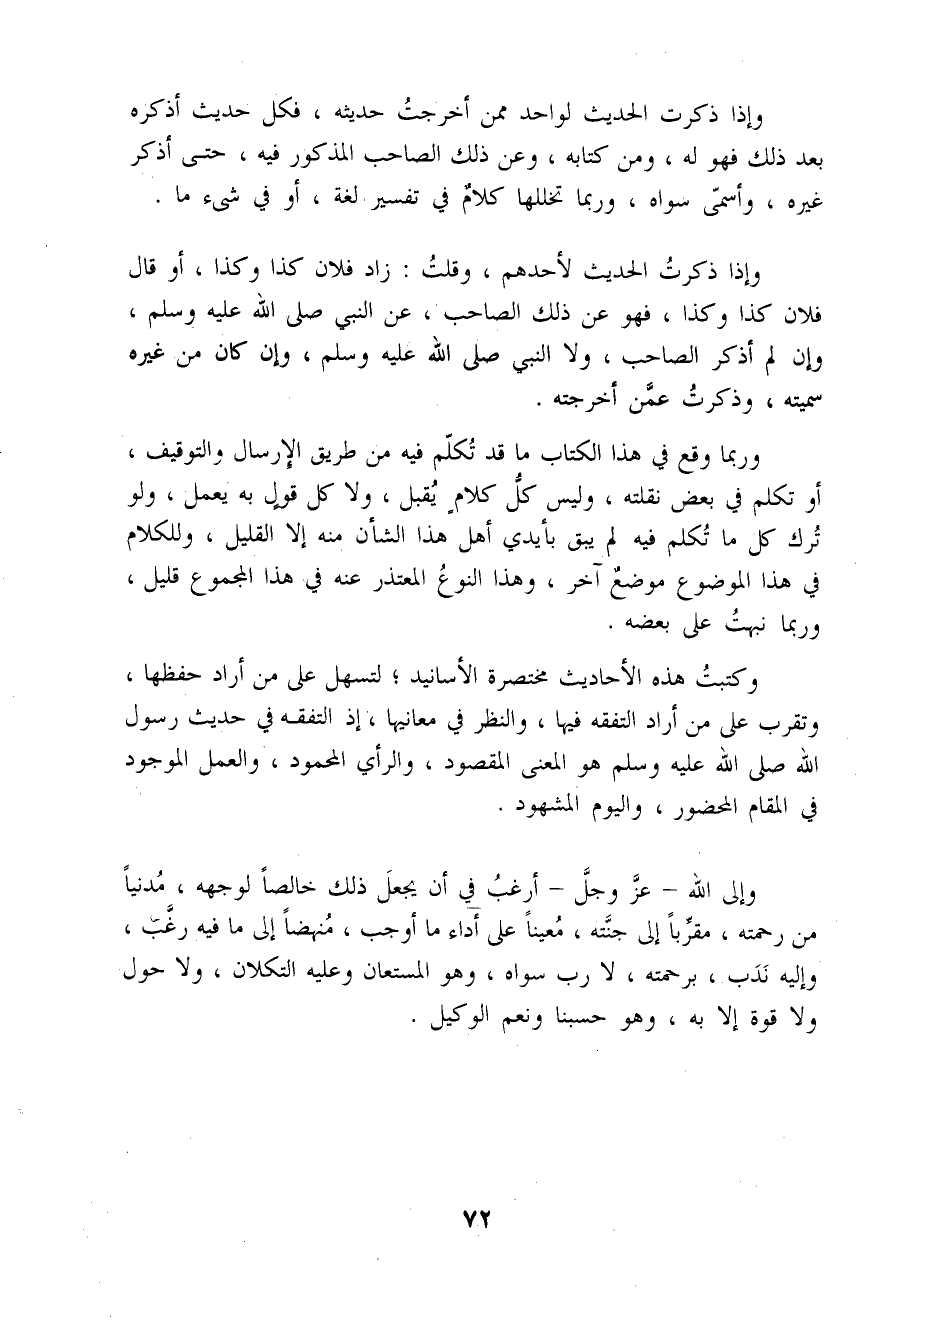 وإذا ذكرت الحديث لواحد ممن أخرجتُ حديثه ، فكل حديث أذكره
بعد ذلك فهو له ، ومن كتابه ، وعن ذلك الصاحب المذكور فيه ، حتى أذكر
غيره ، وأسمّى سواه ، وربما تخللها كلامٌ في تفسير لغة ، أو في شىء ما .
وإذا ذكرتُ الحديث لأحدهم ، وقلتُ : زاد فلان كذا وكذا ، أو قال
فلان كذا وكذا ، فهو عن ذلك الصاحب ، عن النبي صلى الله عليه وسلم ،
وإن لم أذكر الصاحب ، ولا النبي صلى الله عليه وسلم ، وإن كان من غيره
سميته ، وذكرتُ عمَّن أخرجته .
وربما وقع في هذا الكتاب ما قد تُكلّم فيه من طريق الإرسال والتوقيف ،
أو تكلم في بعض نقلته ، وليس كلُّ كلامٍ يُقبل ، ولا كل قولٍ به يعمل ، ولو
تُرك كل ما تُكلم فيه لم يبق بأيدي أهل هذا الشأن منه إلا القليل ، وللكلام
في هذا الموضوع موضعٌ آخر ، وهذا النوعُ المعتذر عنه في هذا المجموع قليل ،
وربما نبهتُ على بعضه .
وكتبتُ هذه الأحاديث مختصرة الأسانيد ؛ لتسهل على من أراد حفظها ،
وتقرب على من أراد التفقه فيها ، والنظر في معانيها ، إذ التفقه في حديث رسول
الله صلى الله عليه وسلم هو المعنى المقصود ، والرأي المحمود ، والعمل الموجود
في المقام المحضور ، واليوم المشهود .
وإلى الله – عزَّ وجلَّ – أرغبُ في أن يجعلَ ذلك خالصاً لوجهه ، مُدنياً
من رحمته ، مقرِّباً إلى جنَّته ، مُعيناً على أداء ما أوجب ، مُنهضاً إلى ما فيه رغَّبَ ،
وإليه نَدَب ، برحمته ، لا رب سواه ، وهو المستعان وعليه التكلان ، ولا حول
ولا قوة إلا به ، وهو حسبنا ونعم الوكيل .
٧٢